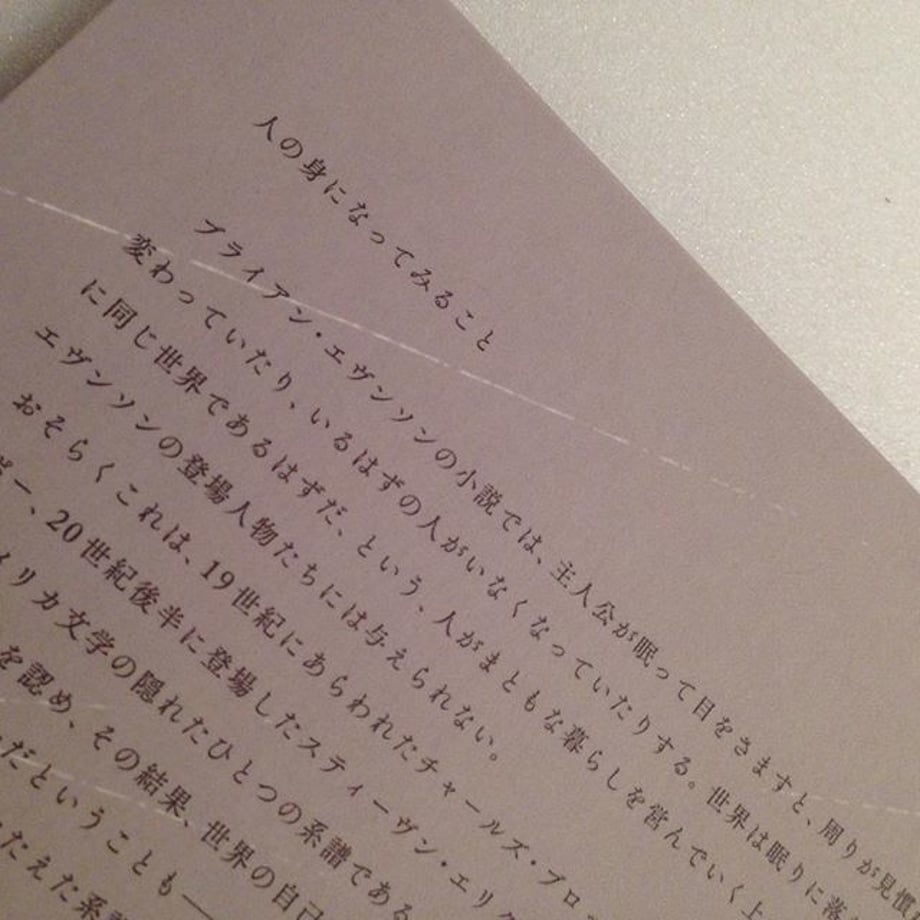 人の身になってみること
ブライアン・エヴンソンの小説では、主人公が眠って目をさますと、周りが見慣
変わっていたり、いるはずの人がいなくなっていたりする。世界は眠りに落
に同じ世界であるはずだ、という、人がまともな暮らしを営んでいく上
エヴンソンの登場人物たちには与えられない。
おそらくこれは、19世紀にあらわれたチャールズ・ブロ
ー、20世紀後半に登場したスティーヴン・エリク
メリカ文学の隠れたひとつの系譜である
を認め、その結果、世界の自己
だということも──
たえた系譜